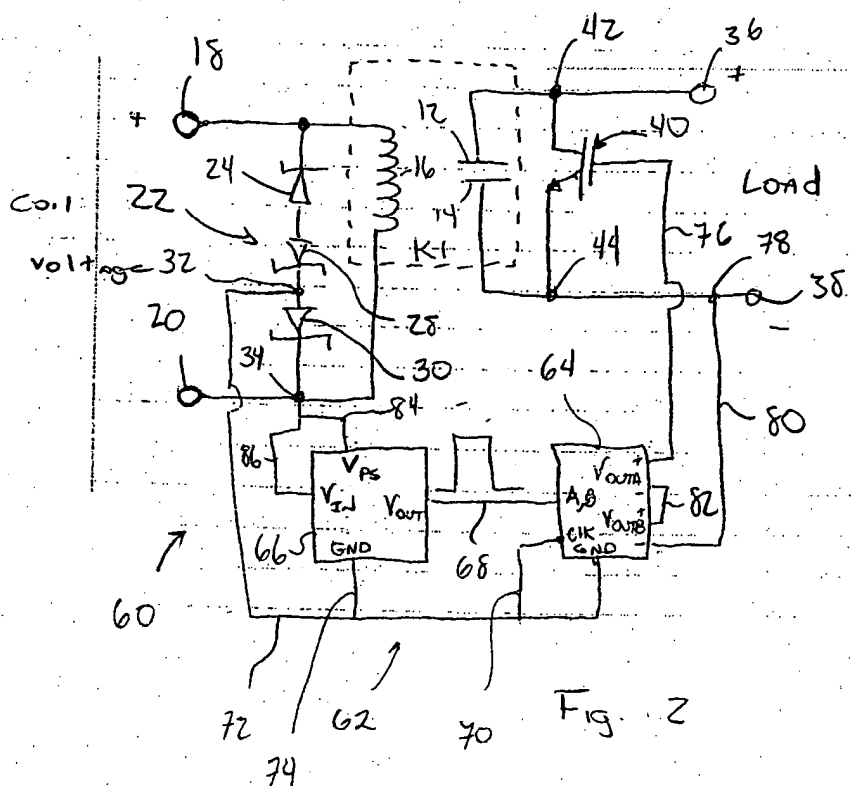 18
42
36
+
+
12
40
24
16
LOAD
Coil
22
14
76
K1
44
78
Voltage
32
28
38
20
-
30
64
34
84
80
86
VPS
VOUTA
+
-
VIN
VOUT
A,B
82
+
VOUTB
CLK
-
66
GND
68
GND
60
72
62
70
Fig. 2
74